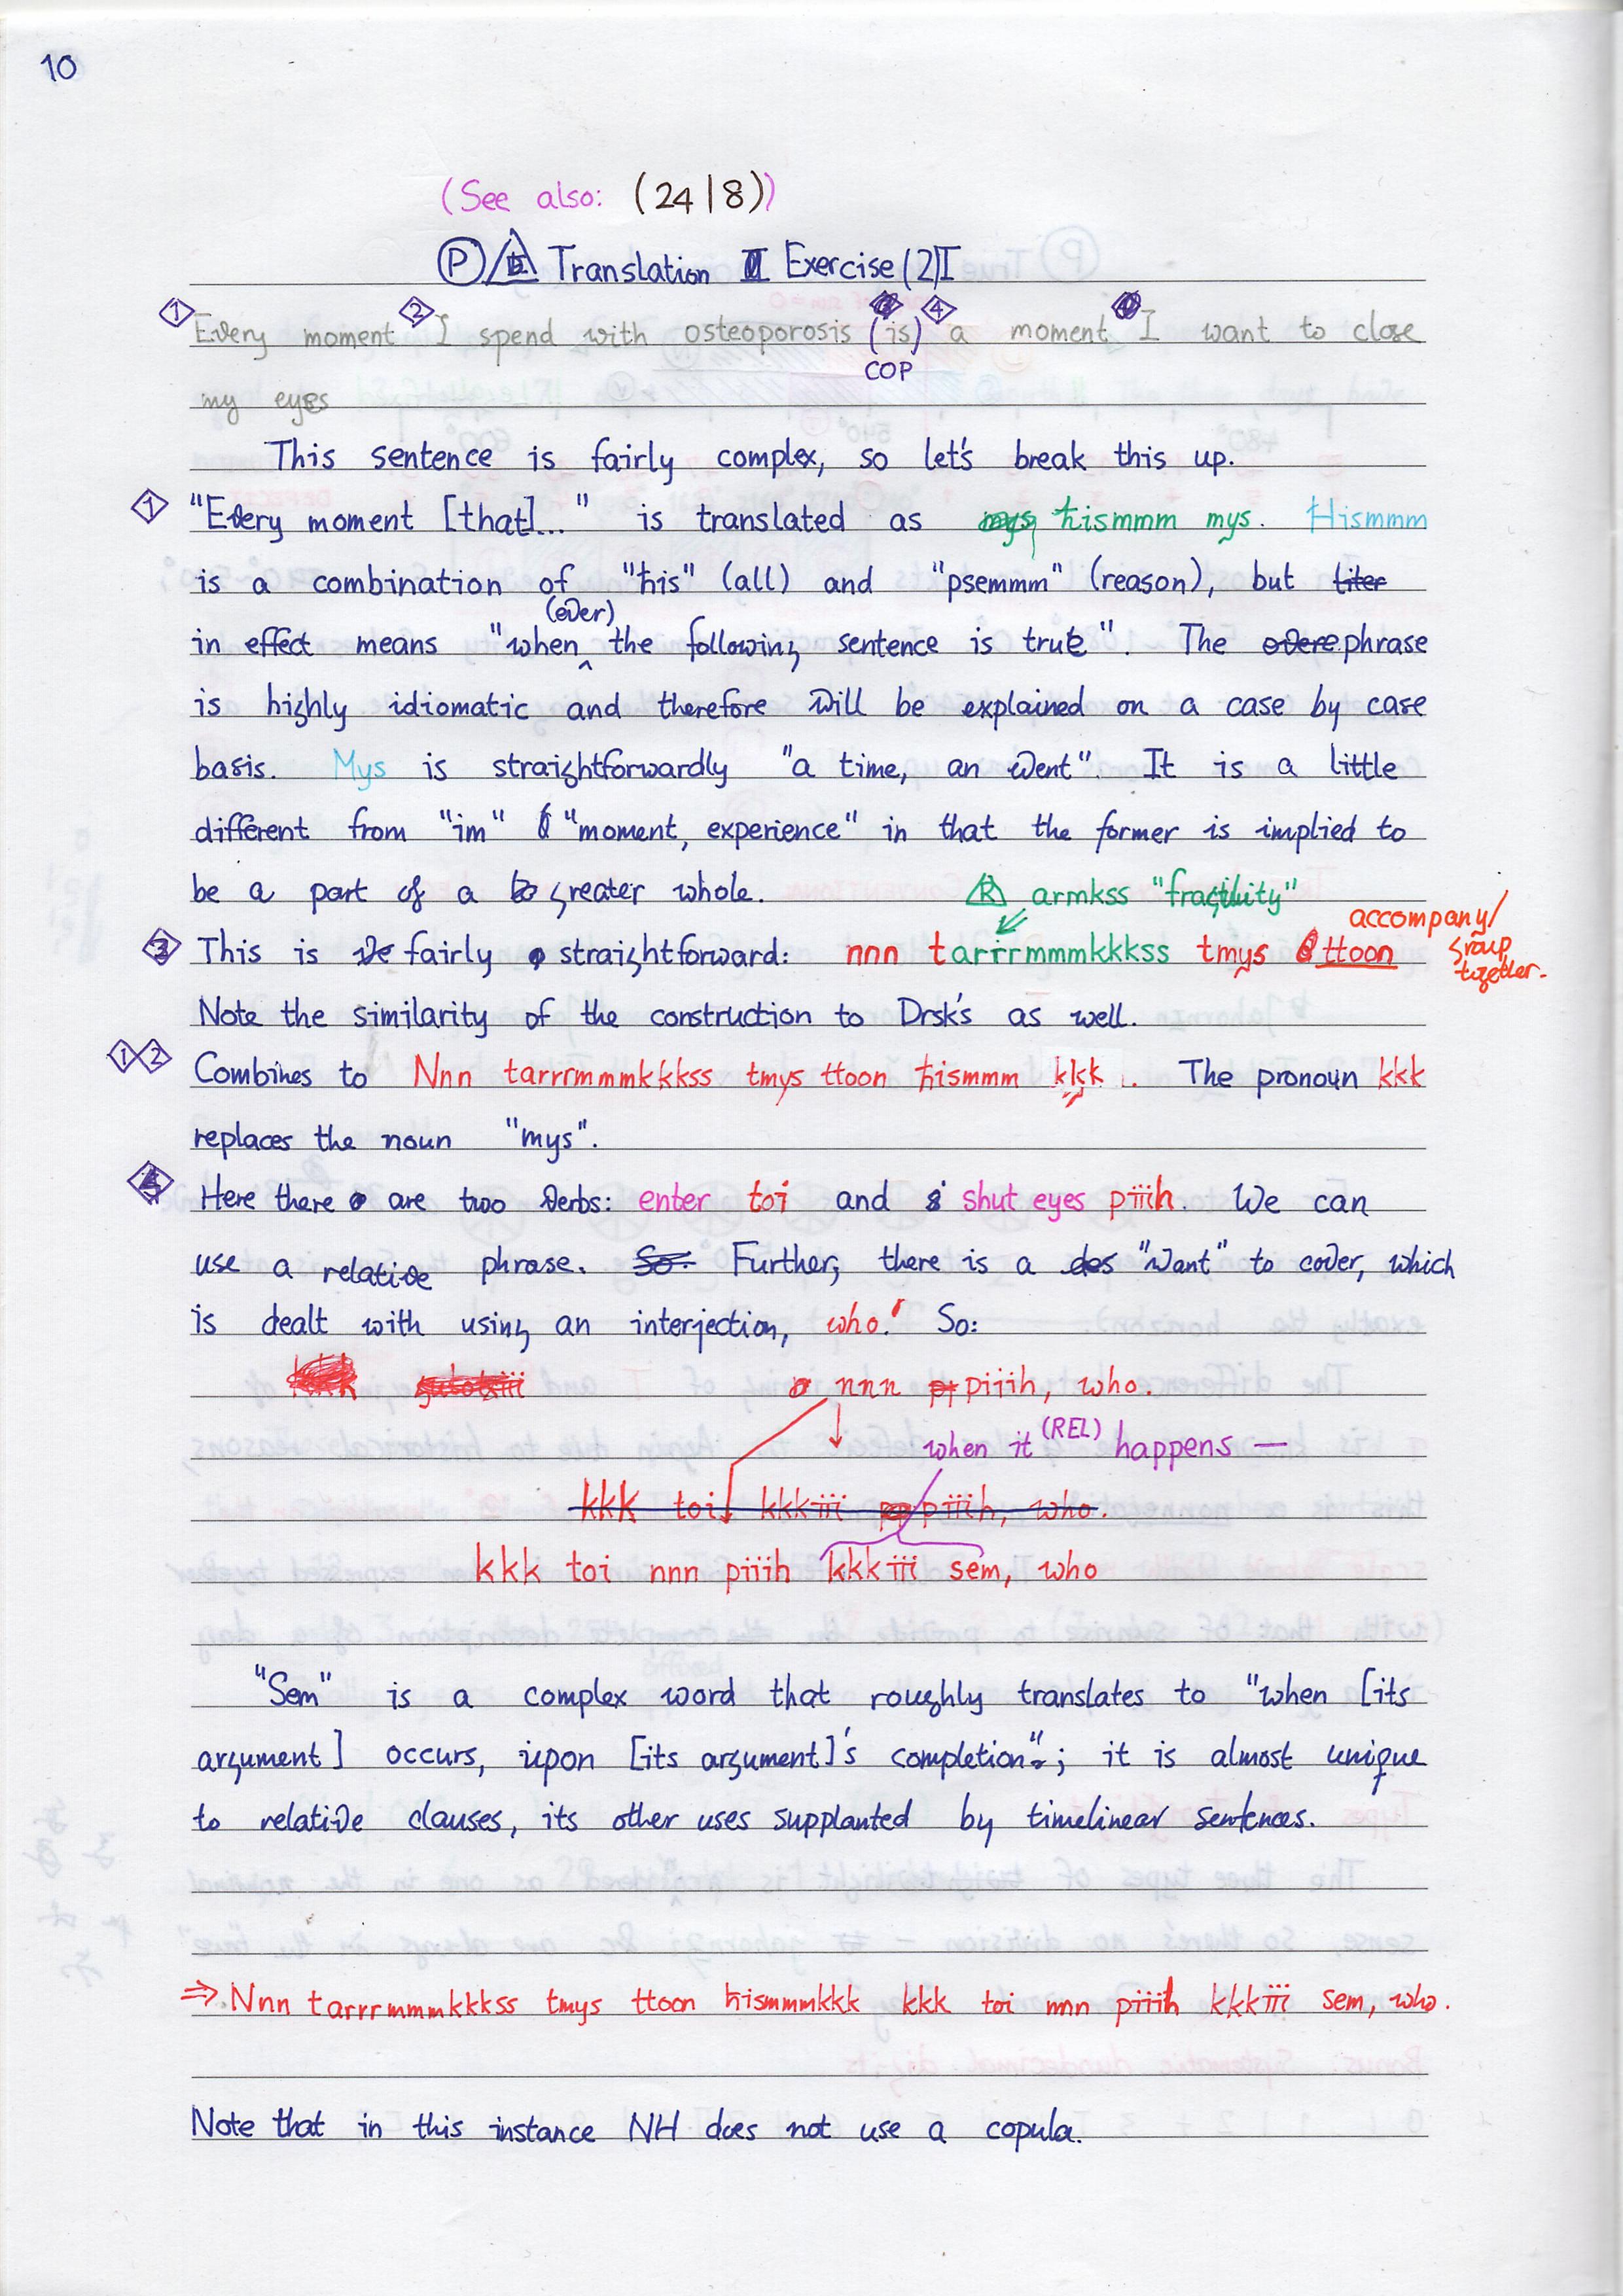 10
(See also: (24|8))
Ⓟ/ Translation Exercise (2)I
1 2 4
Every moment I spend with osteoporosis (is) a moment I want to close
COP
my eyes
This sentence is fairly complex, so let's break this up.
1 "Every moment [that]..." is translated as ħismmm mys. Ħismmm
is a combination of "ħis" (all) and "psemmm" (reason), but liter
(ever)
in effect means "when ‸ the following sentence is true". The phrase
is highly idiomatic and therefore will be explained on a case by case
basis. Mys is straightforwardly "a time, an event". It is a little
different from "im" "moment, experience" in that the former is implied to
be a part of a greater whole. R armkss "fragility"
accompany/
group
together.
This is fairly straightforward: nnn tarrrmmmkkkss tmys ttoon
Note the similarity of the construction to Drsk's as well.
1 2 Combines to Nnn tarrrmmmkkkss tmys ttoon ħismmm kkk. The pronoun kkk
replaces the noun "mys".
4 Here there are two verbs: enter toi and shut eyes piiih. We can
use a relative phrase. So. Further, there is a "want" to cover, which
is dealt with using an interjection, who! So:
nnn piiih, who.
when it (REL) happens —
kkk toi kkkiii piiih, who.
kkk toi nnn piiih kkkiii sem, who
"Sem" is a complex word that roughly translates to "when [its
argument] occurs, upon [its argument]'s completion"; it is almost unique
to relative clauses, its other uses supplanted by timelinear sentences.
⇒ Nnn tarrrmmmkkkss tmys ttoon ħismmmkkk kkk toi nnn piiih kkkiii sem, who.
Note that in this instance NH does not use a copula.